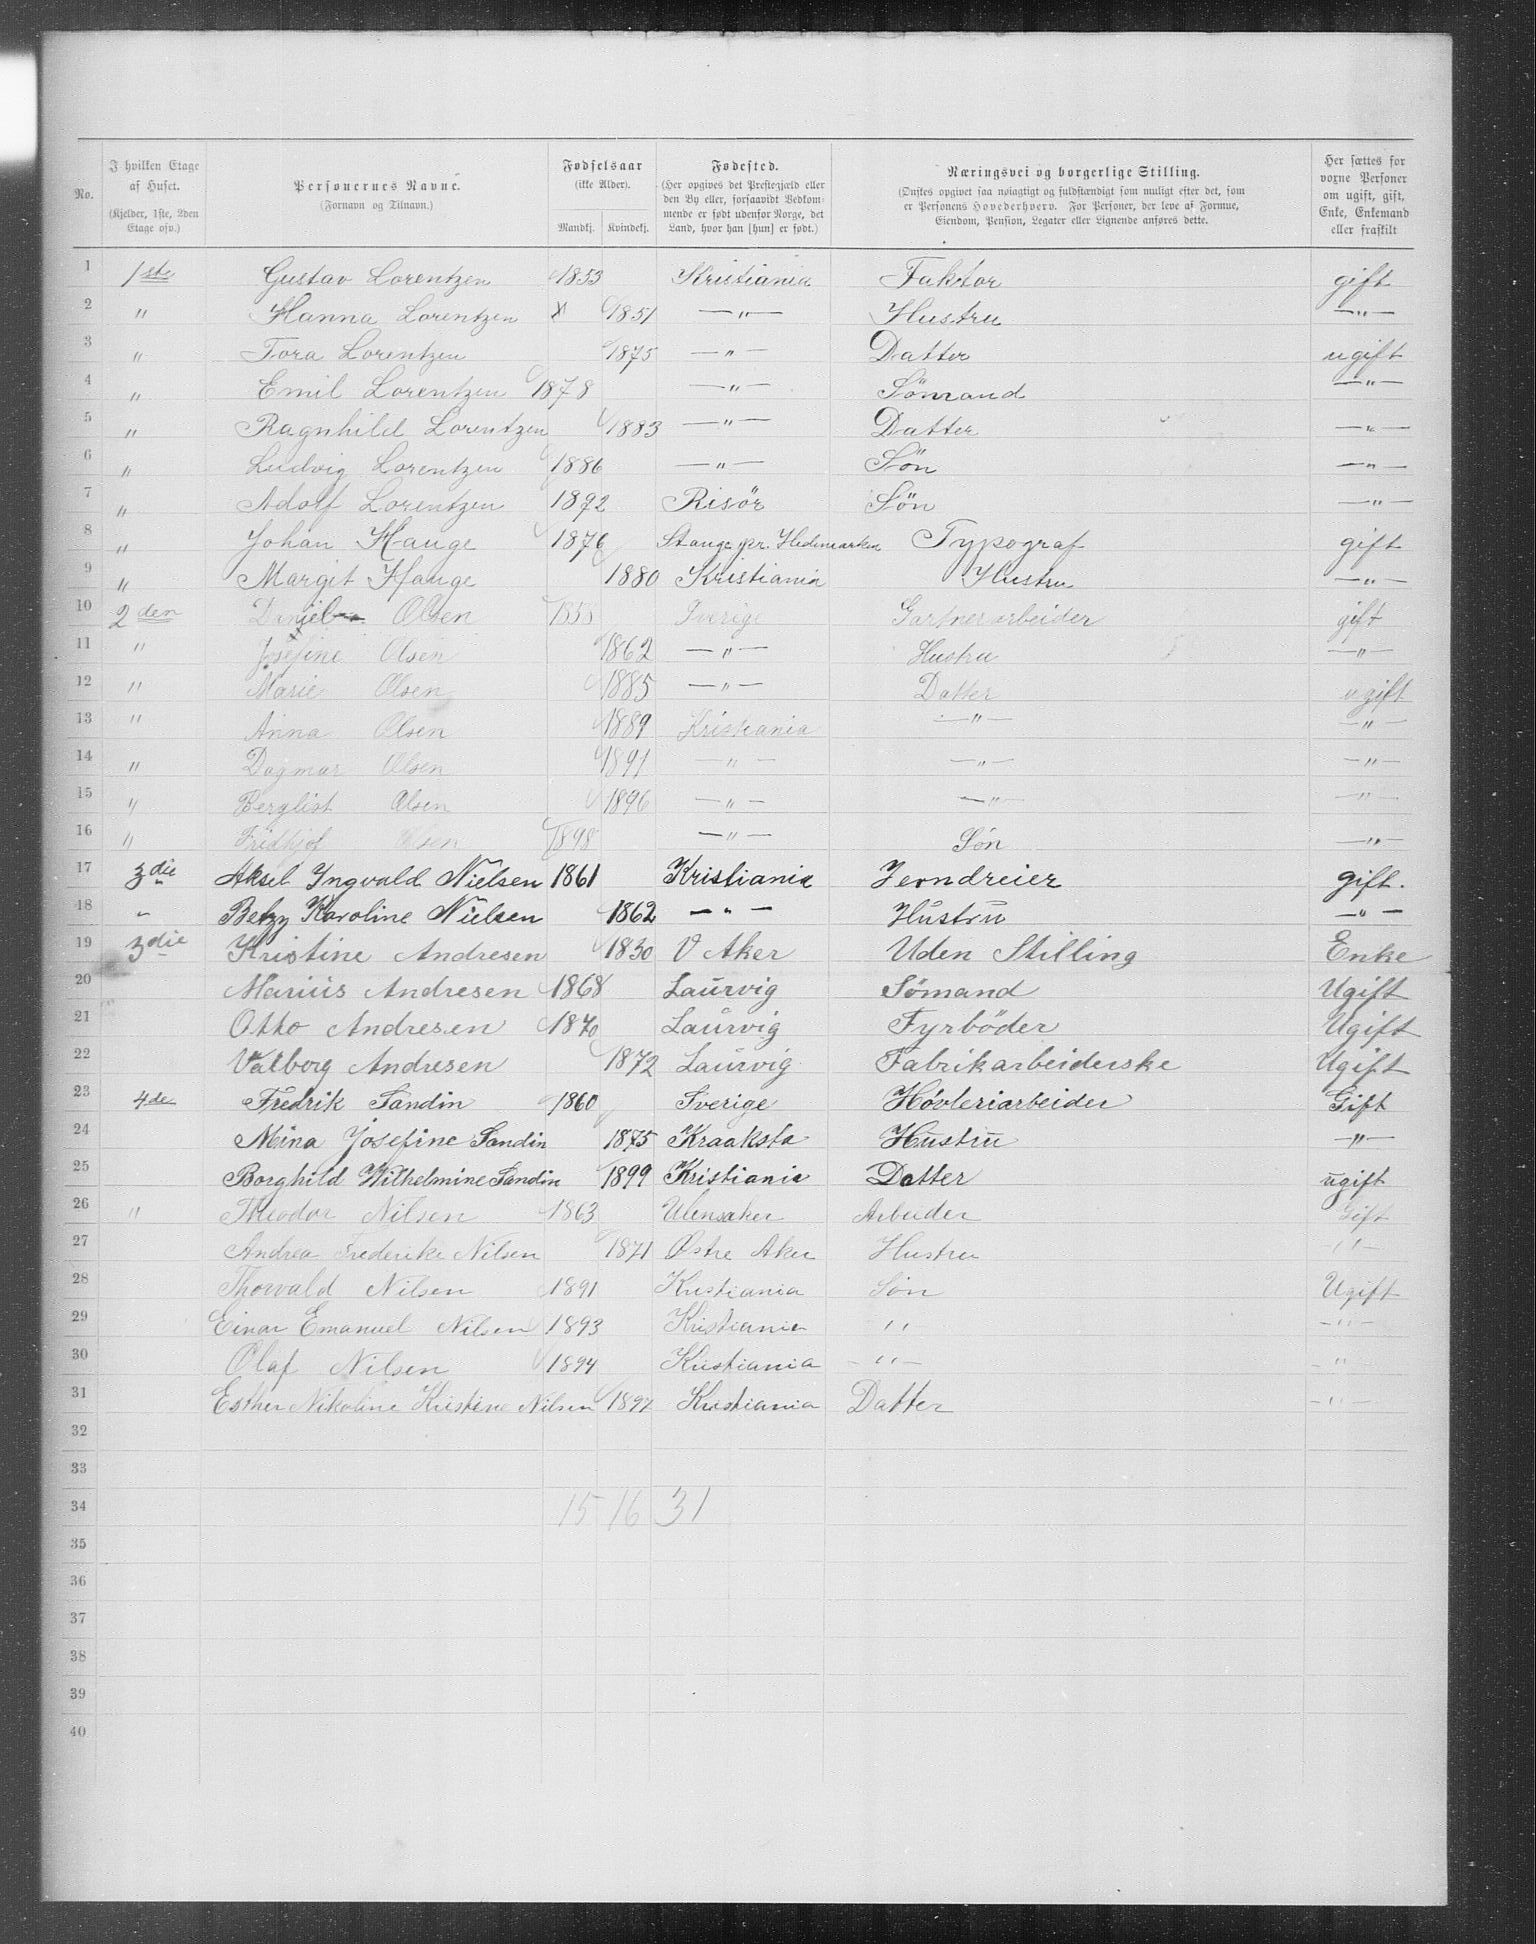 No.
I hvilken Etage af Huset. (Kjelder, 1ste, 2den Etage osv.)
Personernes Navne. (Fornavn og Tilnavn.)
Fødselsaar (ikke Alder). Mandkj. Kvindekj.
Fødested. (Her opgives det Prestegjæld eller den By eller, forsaavidt Vedkommende er født udenfor Norge, det Land, hvor han [hun] er født.)
Næringsvei og borgerlige Stilling. (Ønskes opgivet saa nøiagtigt og fuldstændigt som muligt efter det, som er Personens Hovederhverv. For Personer, der leve af Formue, Eiendom, Pension, Legater eller Lignende anføres dette.
Her sættes for voxne Personer om ugift, gift, Enke, Enkemand eller fraskilt
1 1ste Gustav Lorentzen 1853 Kristiania Faktor gift
2 " Hanna Lorentzen 1851 —"— Hustru —"—
3 " Tora Lorentzen 1875 —"— Datter ugift
4 " Emil Lorentzen 1878 —"— Sömand —"—
5 " Ragnhild Lorentzen 1883 —"— Datter —"—
6 " Ludvig Lorentzen 1886 —"— Sön —"—
7 " Adolf Lorentzen 1892 Risör Sön —"—
8 " Johan Hauge 1876 Stange pr. Hedemarken Typograf gift
9 " Margit Hauge 1880 Kristiania Hustru —"—
10 2den Daniel Olsen Sverige Gartnerarbeider gift
11 " Josefine Olsen 1862 —"— Hustru —"—
12 " Marie Olsen 1885 —"— Datter ugift
13 " Anna Olsen 1889 Kristiania —"— —"—
14 " Dagmar Olsen 1891 —"— —"— —"—
15 " Berglist Olsen 1896 —"— —"— —"—
16 " Fridtjof Olsen 1898 —"— Sön —"—
17 3die Aksel Yngvald Nielsen 1861 Kristiania Jerndreier gift.
18 " Betzy Karoline Nielsen 1862 —"— Hustru —"—
19 3die Kristine Andresen 1830 V Aker Uden Stilling Enke
20 Marius Andresen 1868 Laurvig Sömand Ugift
21 Otto Andresen 1870 Laurvig Fyrböder Ugift
22 Valborg Andresen 1872 Laurvig Fabrikarbeiderske Ugift
23 4de Fredrik Sandin 1860 Sverige Hövleriarbeider Gift
24 Mina Josefine Sandin 1875 Kraaksta Hustru —"—
25 Borghild Wilhelmine Sandin 1899 Kristiania Datter ugift
26 " Theodor Nilsen 1863 Ulensaker Arbeider Gift
27 Andrea Frederike Nilsen 1871 Østre Aker Hustru "
28 Thorvald Nilsen 1891 Kristiania Sön Ugift
29 Einar Emanuel Nilsen 1893 Kristiania " —"—
30 Olaf Nilsen 1894 Kristiania —"— —"
31 Esther Nikoline Kristine Nilsen 1897 Kristiania Datter —"—
32
33
34 15 16 31
35
36
37
38
39
40